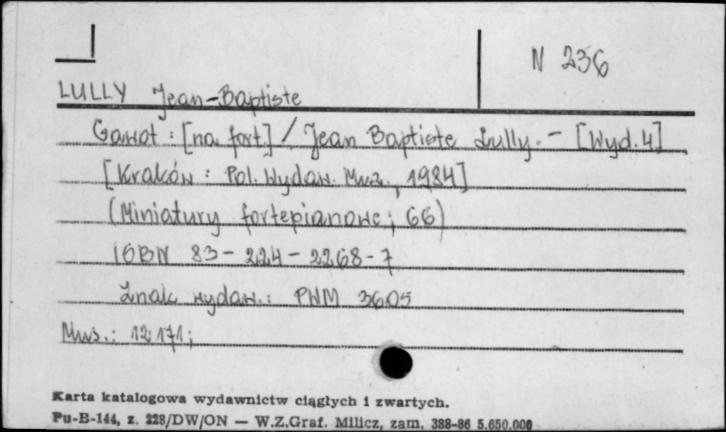 N 236
LULLY Jean-Baptiste
Gawot : [na fort.] / Jean Baptiste Lully. - [Wyd. 4]
[Kraków : Pol. Wydaw. Muz., 1984]
(Miniatury fortepianowe ; 66)
ISBN 83-224-2268-7
Znak wydaw.: PWM 3605
Mus.: 12171;
Karta katalogowa wydawnictw ciągłych i zwartych.
Pu-B-144, z. 228/DW/ON — W.Z.Graf. Milicz, zam. 388-86 5.650.000